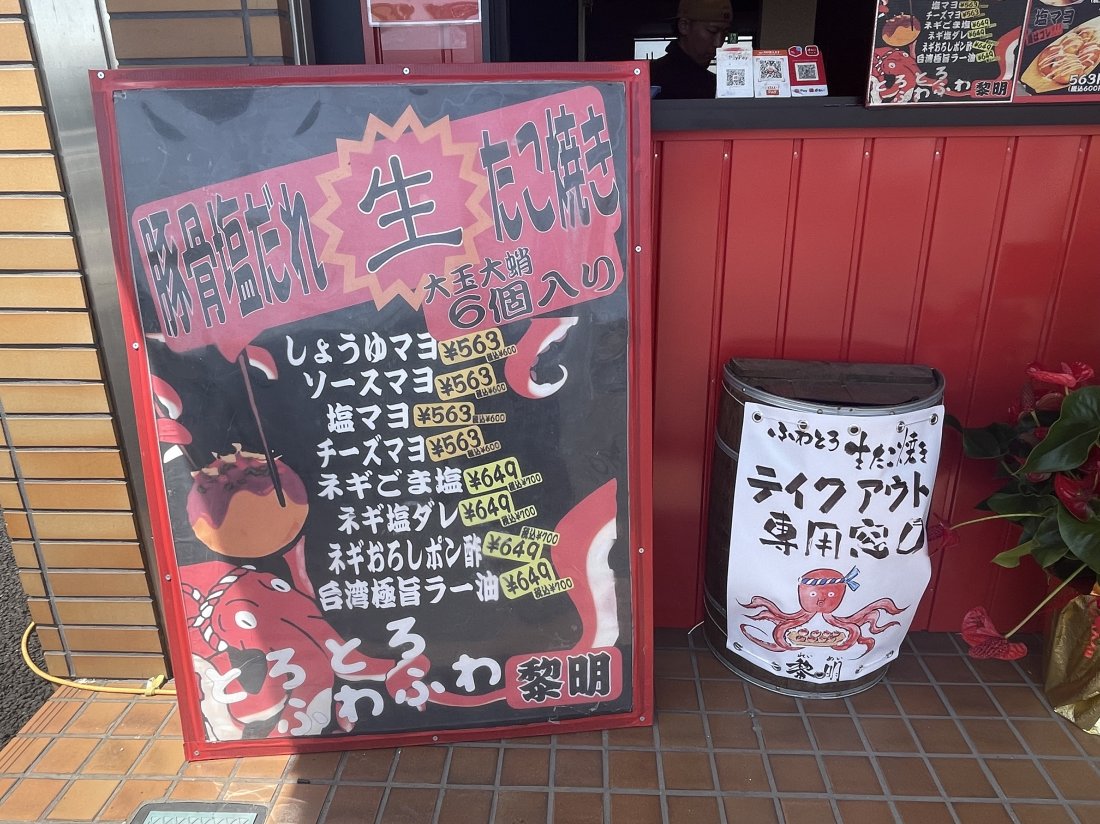 豚骨塩だれ
生
たこ焼き
大玉大蛸
6個入り
しょうゆマヨ ¥563 税込¥600
ソースマヨ ¥563 税込¥600
塩マヨ ¥563 税込¥600
チーズマヨ ¥563 税込¥600
ネギごま塩 ¥649 税込¥700
ネギ塩ダレ ¥649 税込¥700
ネギおろしポン酢 ¥649 税込¥700
台湾極旨ラー油 ¥649 税込¥700
とろとろ
ふわふわ
黎明
塩マヨ ¥563
チーズマヨ ¥563
ネギごま塩 ¥649
ネギ塩ダレ ¥649
ネギおろしポン酢 ¥649
台湾極旨ラー油 ¥649
とろとろ
ふわふわ
黎明
塩マヨ
563円
(税込600円
ふわとろ 生たこ焼き
テイクアウト
専用窓口
れいめい
黎明